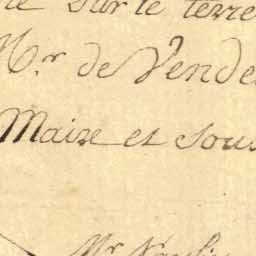 sur le terre
Mr. de Vende
Maire et sous
Mr